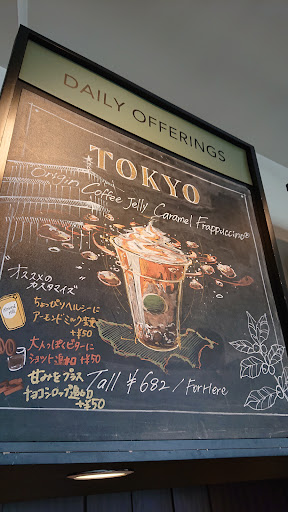 DAILY OFFERINGS
TOKYO
Origin Coffee Jelly Caramel Frappuccino®
"オススメの
カスタマイズ"
ちょっぴりヘルシーに
アーモンドミルク変更
+¥50
大人っぽくビターに
ショット追加 +¥50
甘みをプラス
チョコシロップ追加
+¥50
Tall ¥682 / For Here